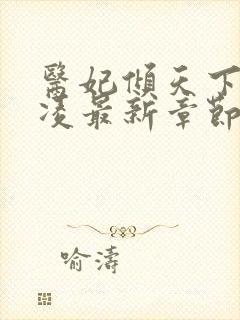 醫妃傾天下
凌最新章節
喻濤